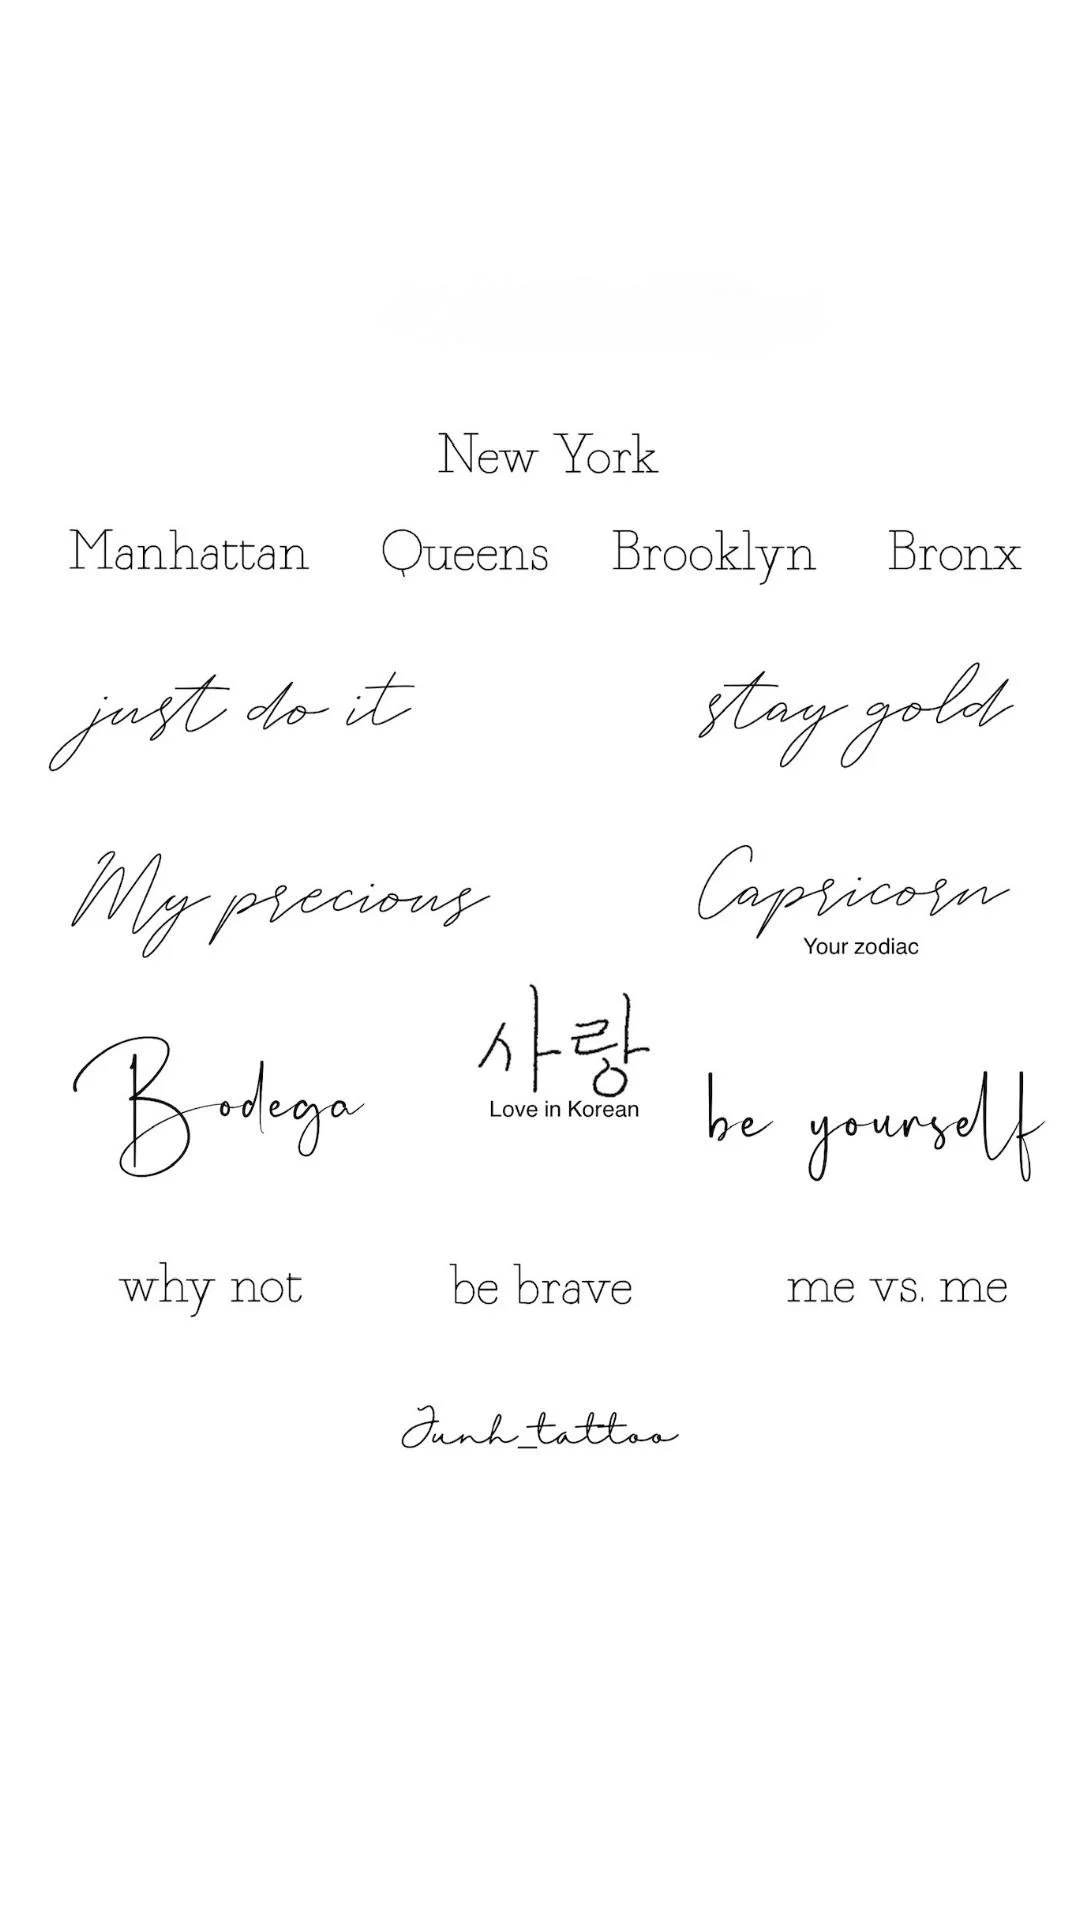 New York
Manhattan Queens Brooklyn Bronx
just do it stay gold
My precious Capricorn
Your zodiac
사랑
Love in Korean
Bodega be yourself
why not be brave me vs. me
Junh_tattoo